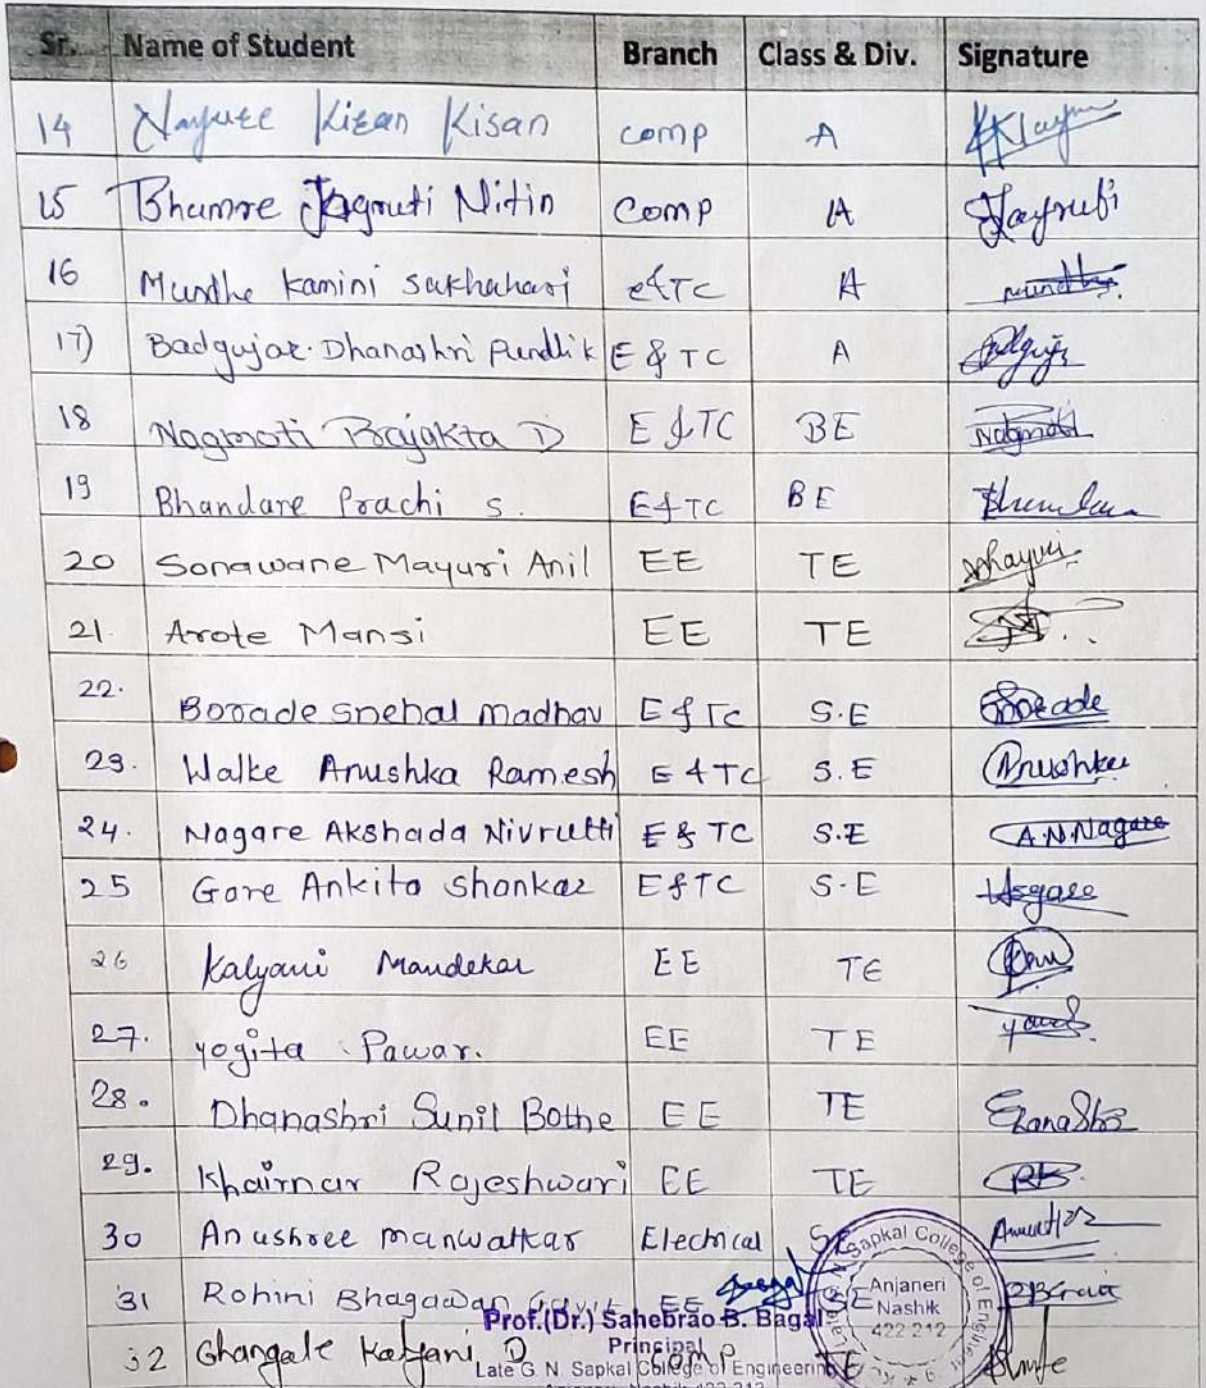 Sr. Name of Student Branch Class & Div. Signature
14 Nayure Kiran Kisan comp A
15 Bhamre Jagruti Nitin Comp A Jagruti
16 Mundhe kamini sakhahari E&TC A
17) Badgujar. Dhanashri Pundlik E & TC A
18 Nagmoti Prajakta D E &TC BE Nagmoti
19 Bhandare Prachi S. E&TC BE
20 Sonawane Mayuri Anil EE TE Mayuri
21. Arote Mansi EE TE
22. Borade snehal madhav E & TC S.E Borade
23. Walke Anushka Ramesh E & TC S.E Anushka
24. Nagare Akshada Nivrutti E & TC S.E A.N.Nagare
25 Gore Ankita Shankar E&TC S-E
26 Kalyani Mandekar EE TE
27. yogita Pawar. EE TE
28. Dhanashri Sunil Bothe EE TE Dhanashri
29. Khairnar Rajeshwari EE TE RK
30 Anushree manwatkar Electrical SE
31 Rohini Bhagawan EE SE
Prof.(Dr.) Sahebrao B. Bagal
32 Ghangale Kalyani D Comp TE
Principal
Late G. N. Sapkal College of Engineering
Sapkal College of Engineering
Anjaneri
Nashik
422 212